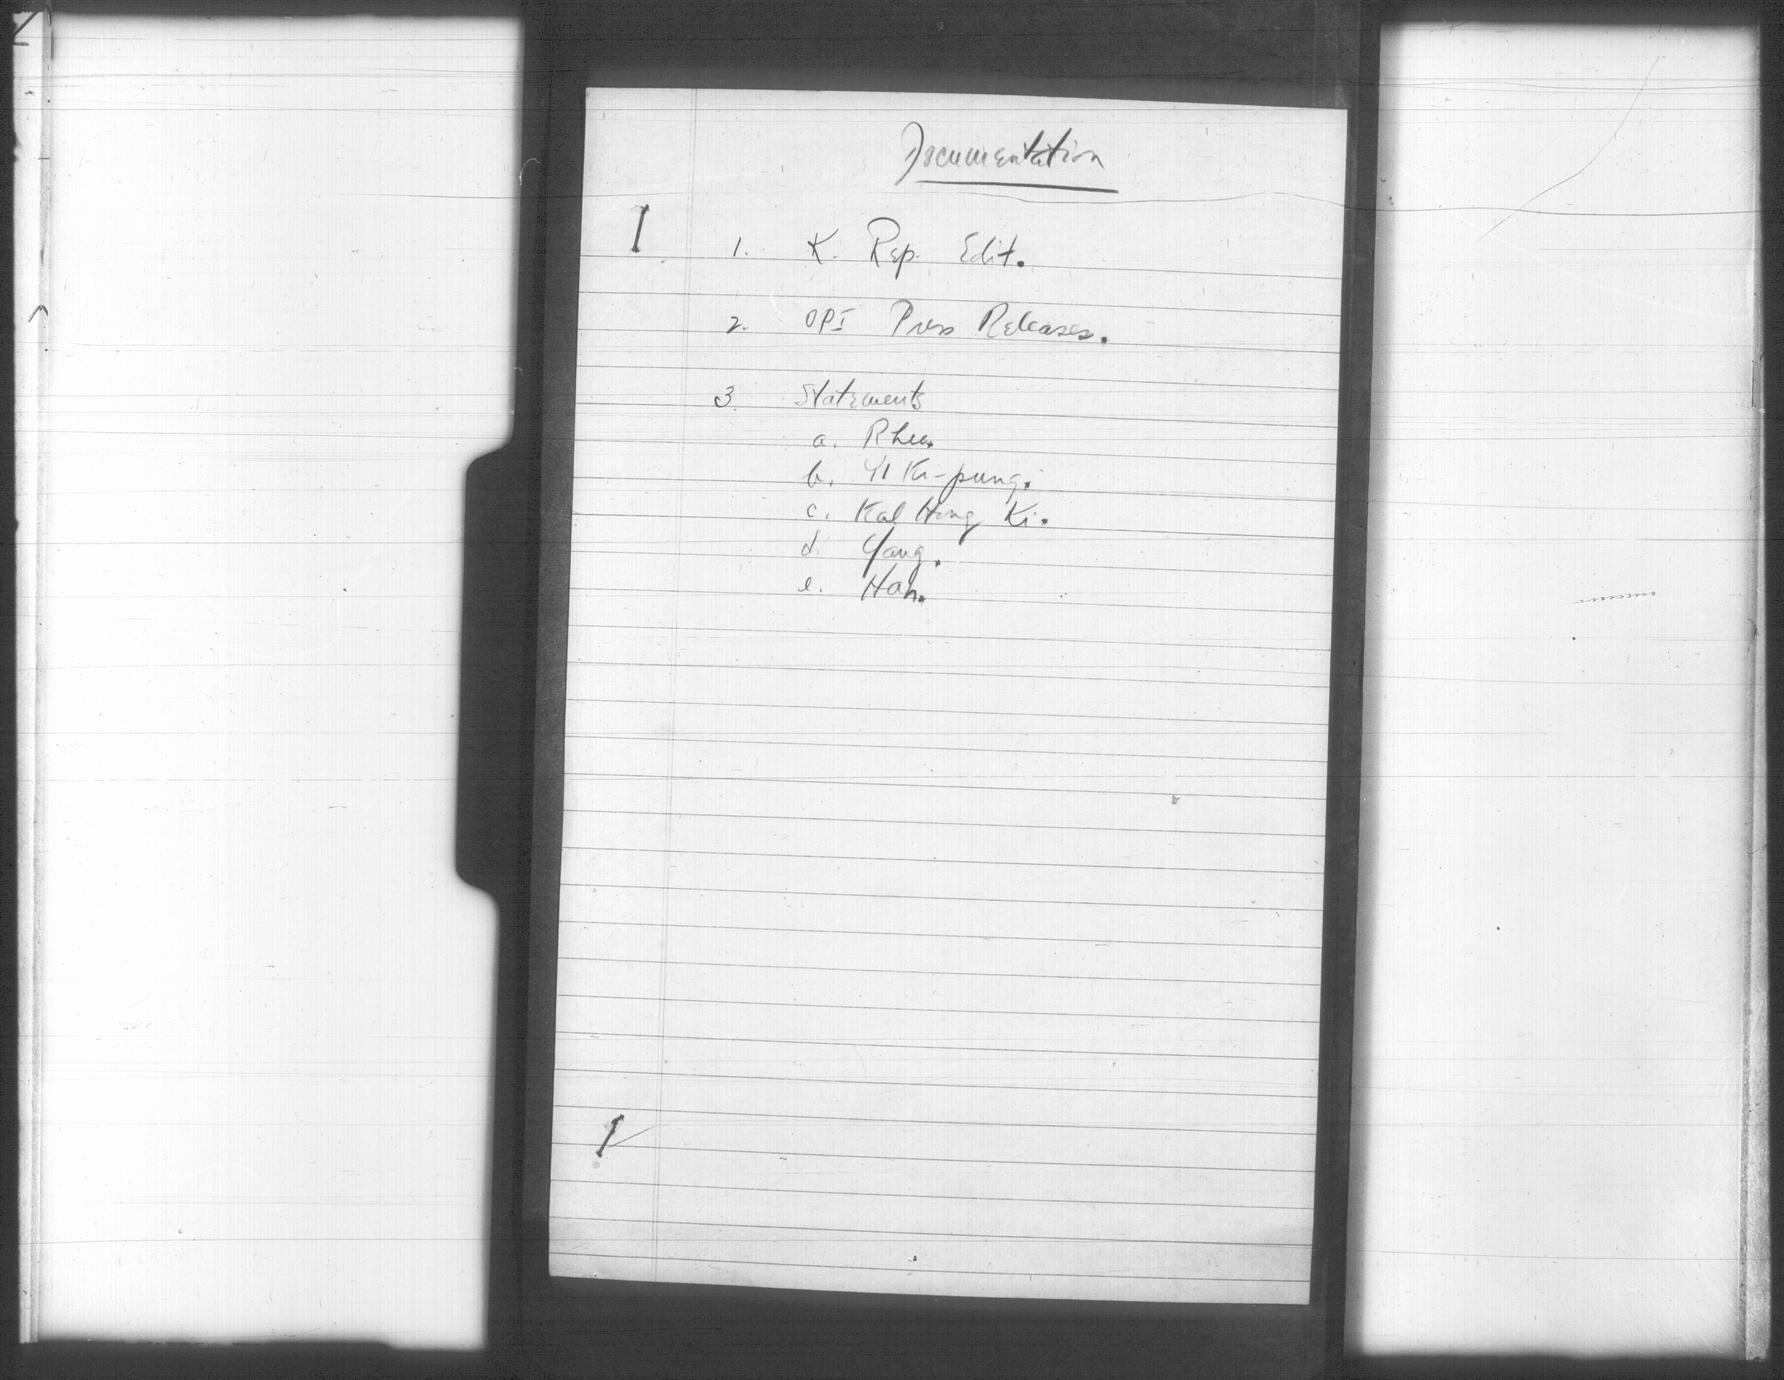 Documentation
I
1. K. Rep. Edit.
2. OPI Press Releases.
3. Statements
a. Rhee.
b. Yi Ki-pung.
c. Kal Hong Ki.
d. Yang.
e. Han.
I